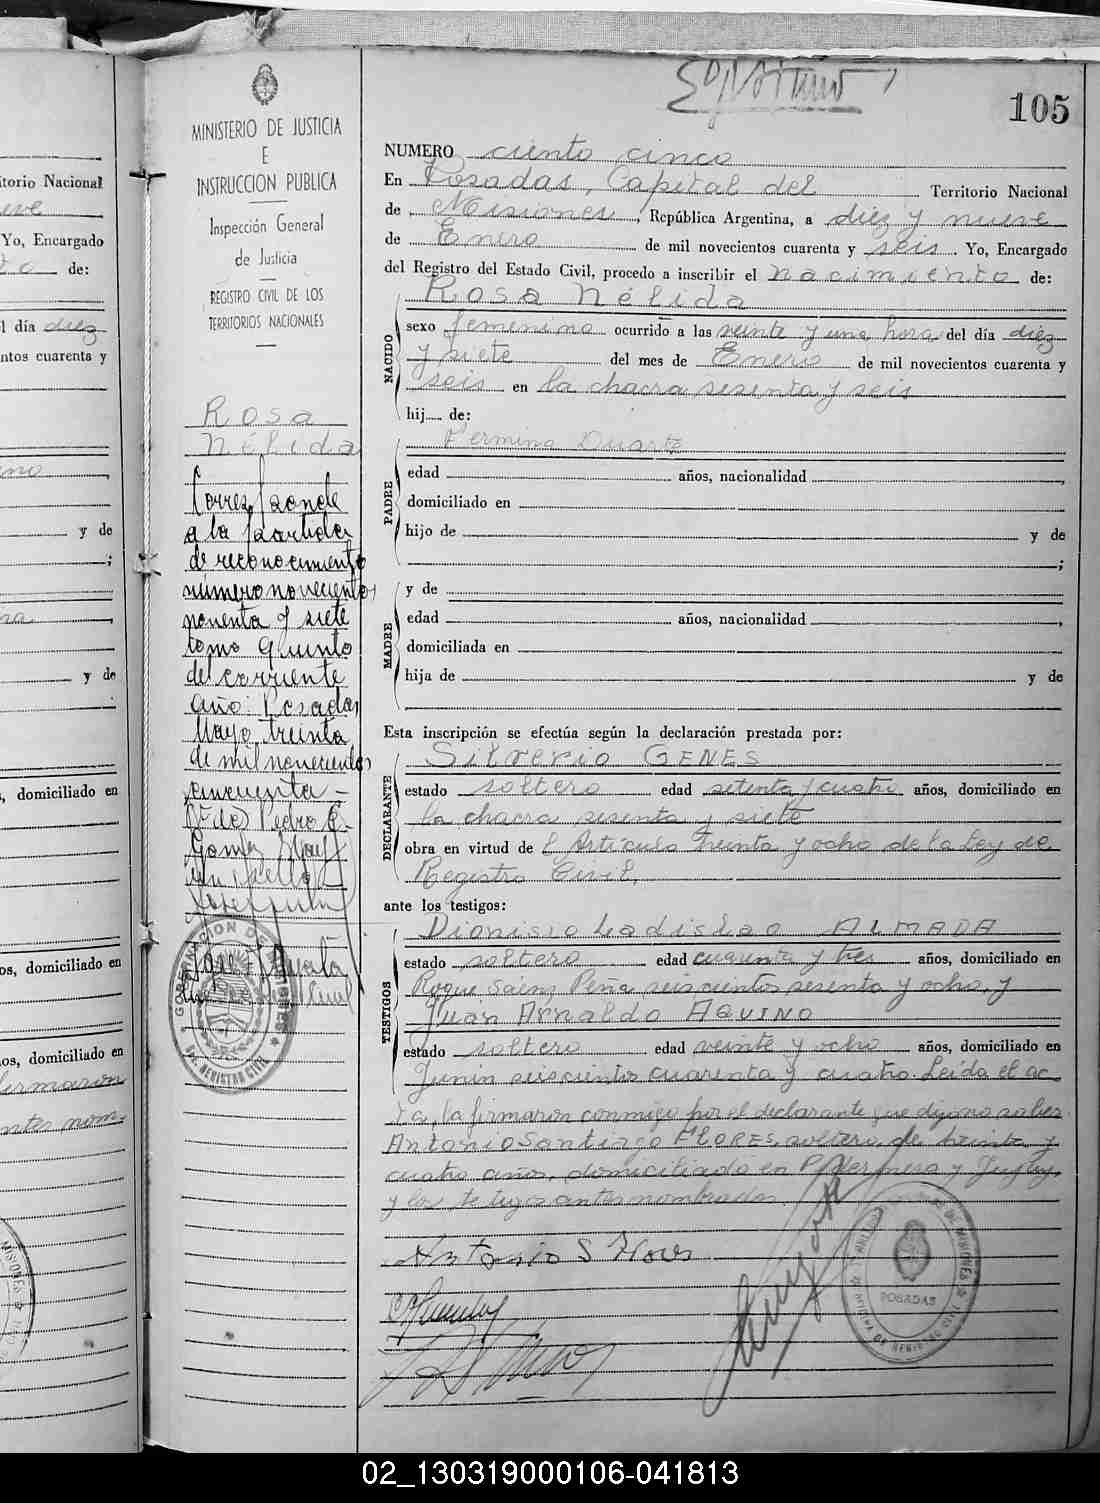 105
MINISTERIO DE JUSTICIA
E
INSTRUCCION PUBLICA
Inspección General
de Justicia
REGISTRO CIVIL DE LOS
TERRITORIOS NACIONALES
Rosa
Nélida
Torres, ponde
a la partida
de reconocimiento
número novecientos
noventa y siete
tomo quinto
del corriente
año: Posadas,
Mayo treinta
de mil novecientos
cincuenta -
Pedro E.
Gomez
un sello
GOBERNACION DE MISIONES
REGISTRO CIVIL
NUMERO ciento cinco
En Posadas, Capital del Territorio Nacional
de Misiones, República Argentina, a diez y nueve
de Enero de mil novecientos cuarenta y seis. Yo, Encargado
del Registro del Estado Civil, procedo a inscribir el nacimiento de:
Rosa Nélida
NACIDO
sexo femenino ocurrido a las veinte y una hora del día diez
y siete del mes de Enero de mil novecientos cuarenta y
seis en la chacra sesenta y seis
hij de:
Permina Duarte
PADRE
edad años, nacionalidad ,
domiciliado en
hijo de y de
;
MADRE
y de
edad años, nacionalidad ,
domiciliada en
hija de y de
Esta inscripción se efectúa según la declaración prestada por:
DECLARANTE
Silverio GENES
estado soltero edad setenta y cuatro años, domiciliado en
la chacra sesenta y siete
obra en virtud de l Artículo treinta y ocho de la Ley de
Registro Civil,
ante los testigos:
TESTIGOS
Dionisio Ladislao ALMADA
estado soltero edad cuarenta y tres años, domiciliado en
Roque Sáinz Peña seiscientos sesenta y ocho, y
Juan Arnaldo AQUINO
estado soltero edad veinte y ocho años, domiciliado en
Junín seiscientos cuarenta y cuatro. Leída el ac
ta, la firmaron conmigo por el declarante que dijo no saber
Antonio Santiago FLORES, soltero, de treinta y
cuatro años, domiciliado en y Jujuy,
y los testigos antes nombrados.
Antonio S Flores
POSADAS
itorio Nacional
Yo, Encargado
de:
l día diez
ntos cuarenta y
y de
;
y de
, domiciliado en
os, domiciliado en
os, domiciliado en
firmaron
antes nom-
02_130319000106-041813